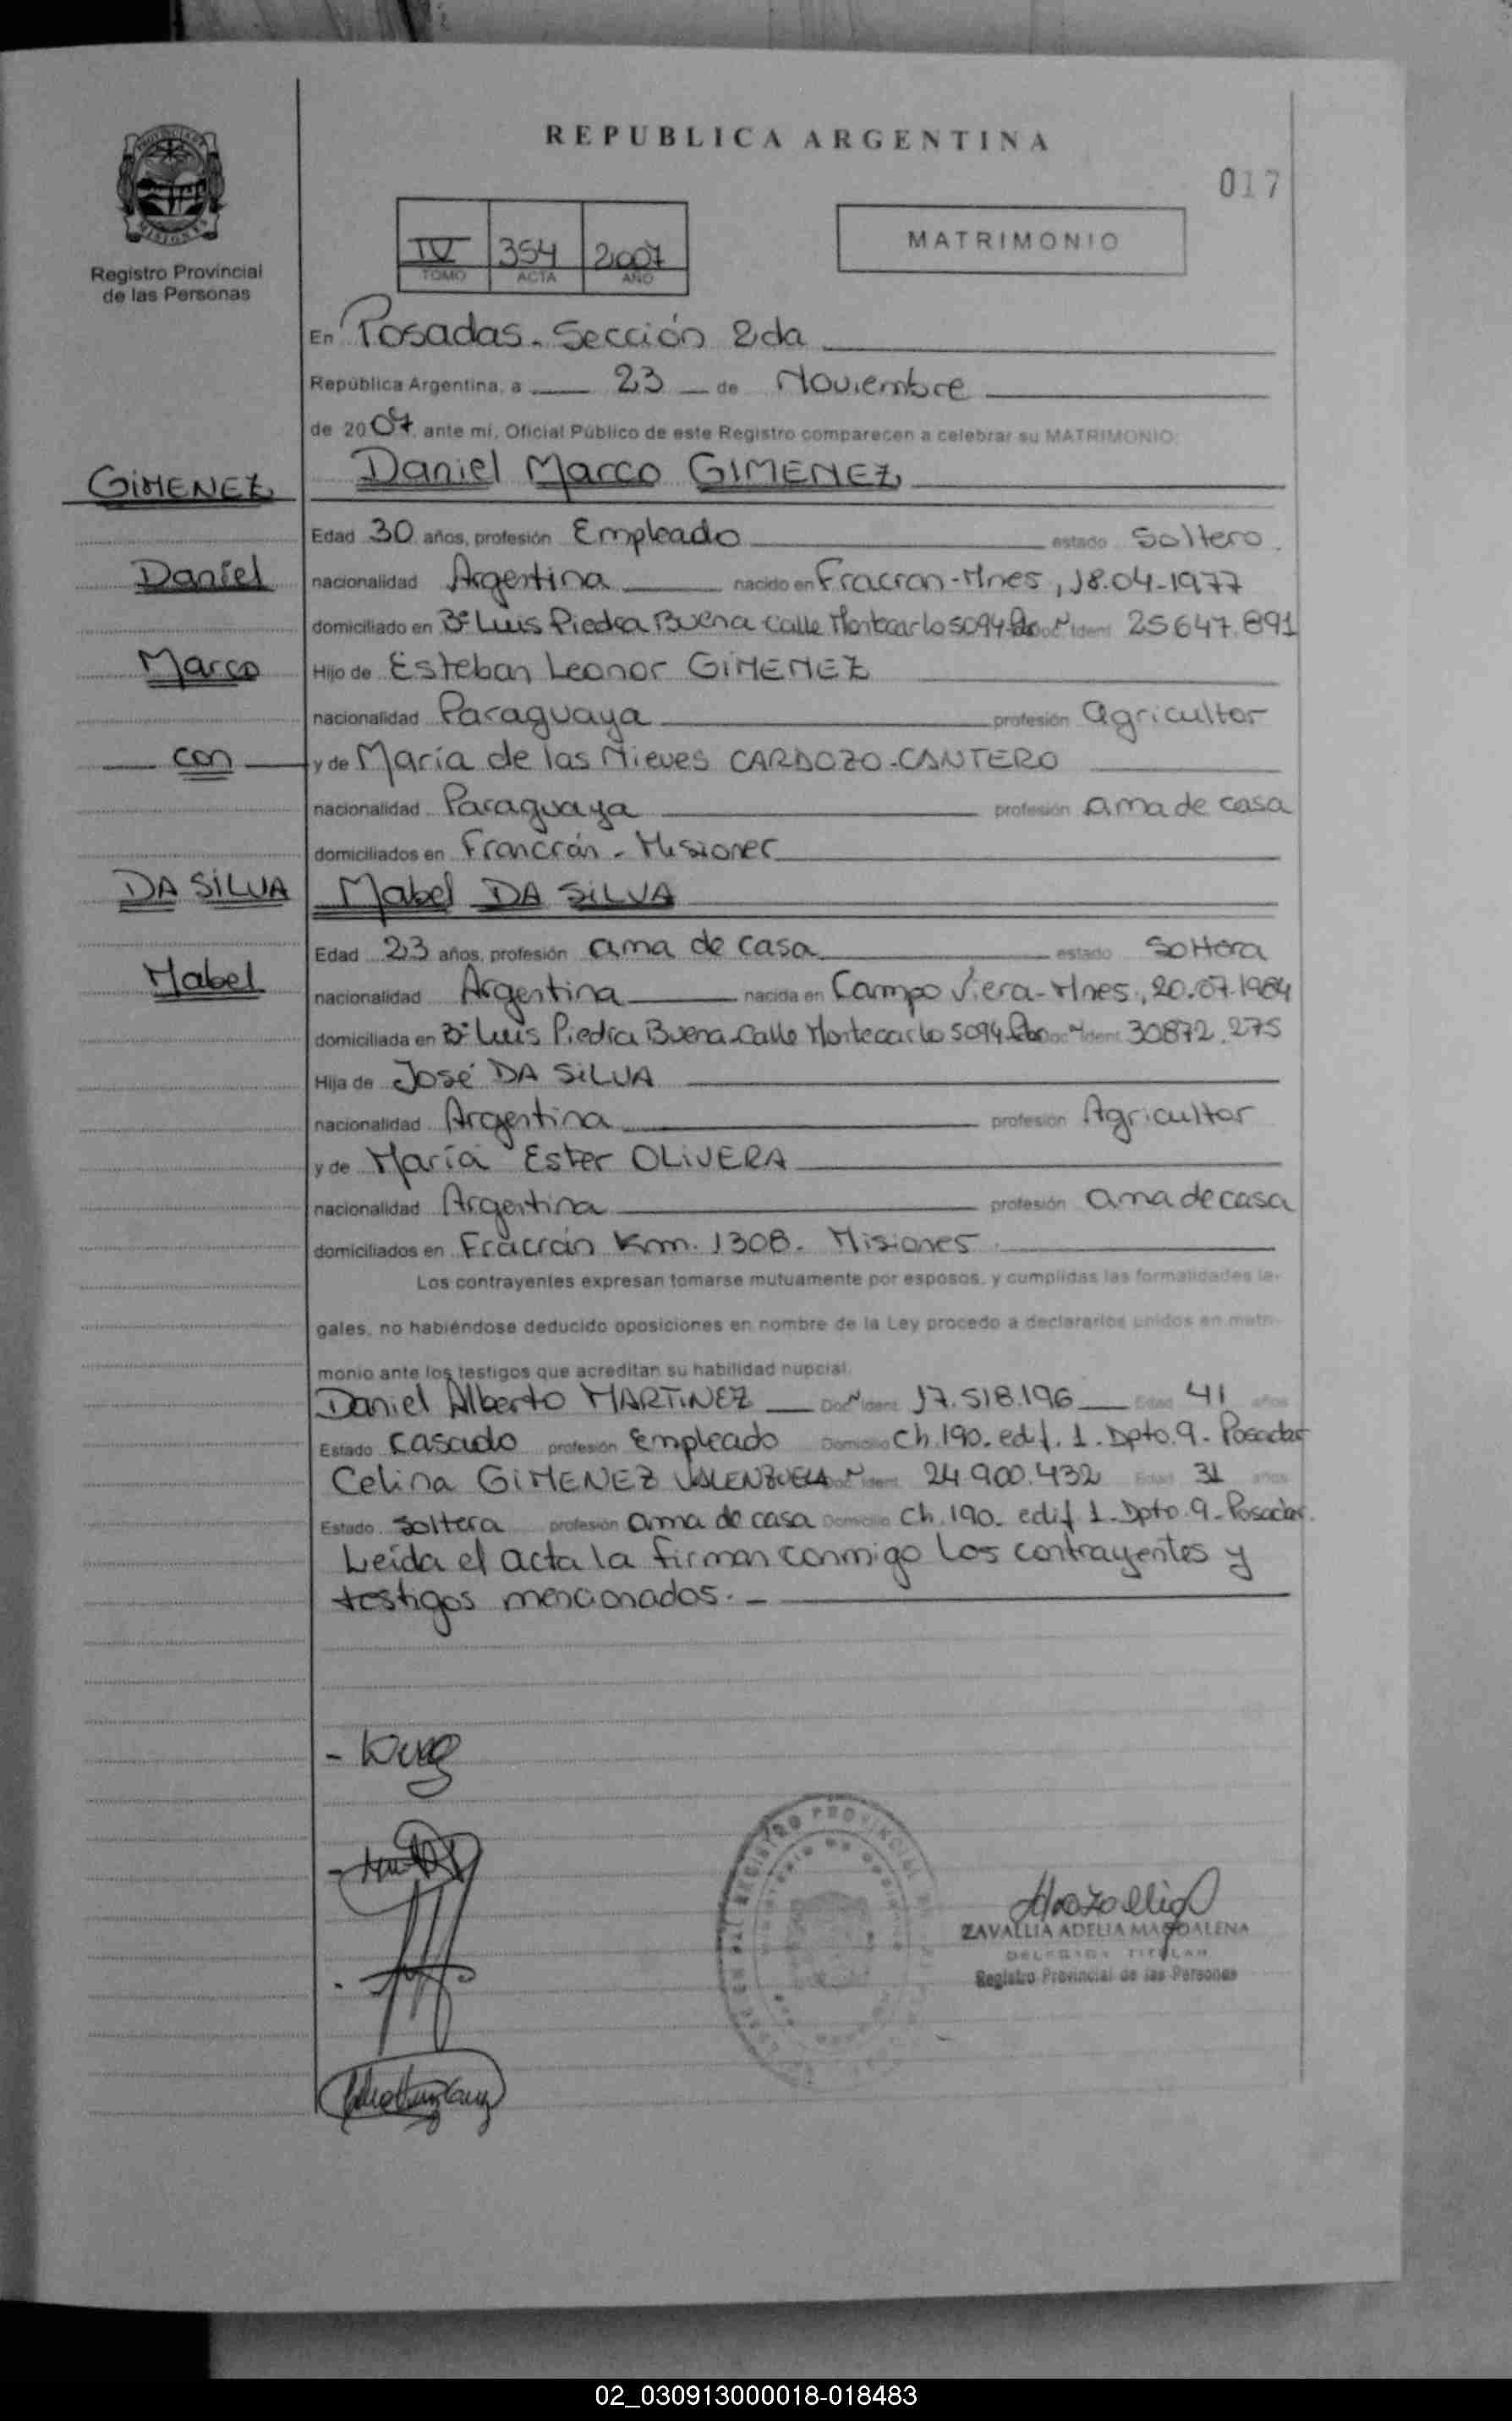 REPUBLICA ARGENTINA
017
IV 354 2007
TOMO ACTA AÑO
MATRIMONIO
Registro Provincial
de las Personas
En Posadas. Sección 2da
República Argentina, a 23 de Noviembre
de 2007 ante mí, Oficial Público de este Registro comparecen a celebrar su MATRIMONIO:
GIMENEZ
Daniel Marco GIMENEZ
Edad 30 años, profesión Empleado estado Soltero.
Daniel
nacionalidad Argentina nacido en Fracran-Mnes, 18.04-1977
domiciliado en Bº Luis Piedra Buena calle Montecarlo 5094 Doc. Nº Ident. 25647.891
Marco
Hijo de Esteban Leonor GIMENEZ
nacionalidad Paraguaya profesión agricultor
con
y de María de las Nieves CARDOZO-CANTERO
nacionalidad Paraguaya profesión ama de casa
domiciliados en Francrán - Misiones
DA SILVA
Mabel DA SILVA
Edad 23 años, profesión ama de casa estado Soltera
Mabel
nacionalidad Argentina nacida en Campo Viera-Mnes, 20.07.1984
domiciliada en Bº Luis Piedra Buena-Calle Montecarlo 5094 Doc. Nº Ident. 30872.275
Hija de José DA SILVA
nacionalidad Argentina profesión Agricultor
y de María Ester OLIVERA
nacionalidad Argentina profesión ama de casa
domiciliados en Fracrán Km. 1308. Misiones
Los contrayentes expresan tomarse mutuamente por esposos, y cumplidas las formalidades le-
gales, no habiéndose deducido oposiciones en nombre de la Ley procedo a declararlos unidos en matri-
monio ante los testigos que acreditan su habilidad nupcial.
Daniel Alberto MARTINEZ Doc. Nº Ident. 17.518.196 Edad 41 años
Estado casado profesión Empleado Domicilio Ch.190. edif. 1. Dpto.9- Posadas
Celina GIMENEZ VALENZUELA Doc. Nº Ident. 24.900.432 Edad 31 años
Estado soltera profesión ama de casa Domicilio Ch.190. edif 1. Dpto.9- Posadas.
Leída el acta la firman conmigo los contrayentes y
testigos mencionados.-
ZAVALLIA ADELIA MAGDALENA
DELEGADA TITULAR
Registro Provincial de las Personas
02_030913000018-018483